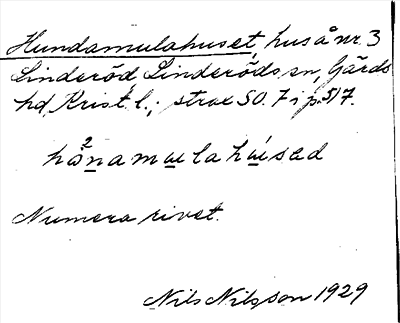 Hundamulahuset, hus å nr. 3
Linderöd Linderöds sn, Gärds
hd, Krist. l.; strax SO. 7 i p. 517.
hånamulahúsed
Numera rivet.
Nils Nilsson 1929